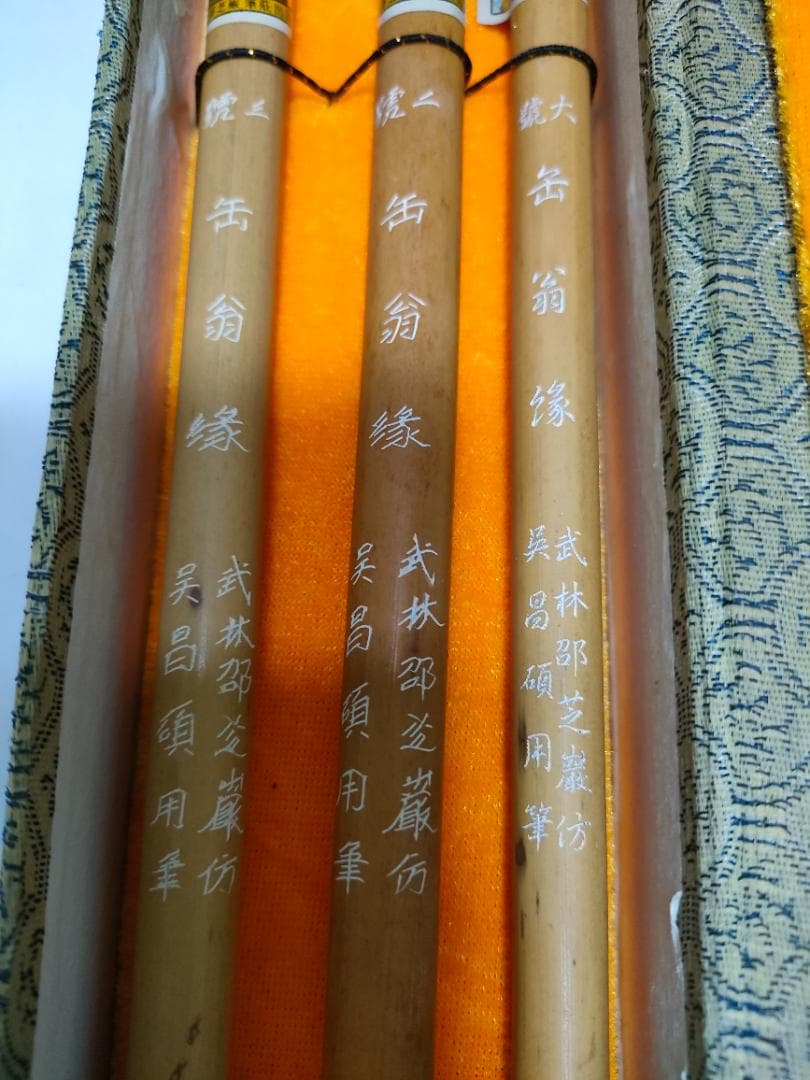 大號
缶翁缘
武林邵芝巖仿
吳昌碩用筆
缶翁缘
武林邵芝巖仿
吴昌碩用筆
缶翁缘
武林邵芝巖仿
吴昌碩用筆